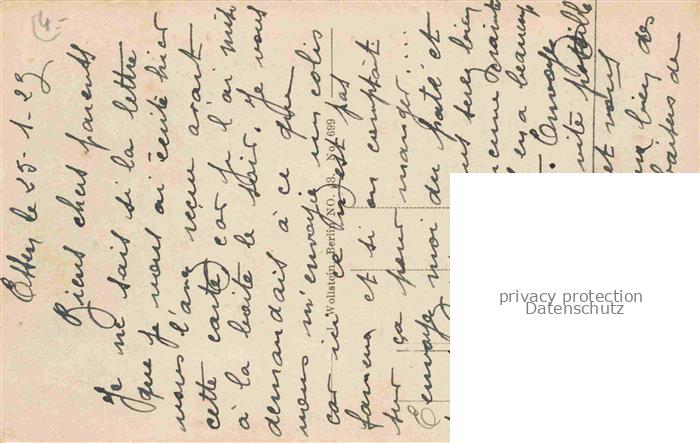 Essen le 25-1-23
Biens chers parents
Je ne sais si la lettre
que je vous ai écrite hier
vous l'avez reçue avant
cette carte car je l'ai mise
à la boite le soir. Je vous
demandais à ce que
vous m'envoyiez un colis
car ici ce n'est pas
fameux et si on comptait
sur ça pour manger...
Envoyez moi du pâté et
bien
en a beaucoup
. Envoyez
vite
et vous
bien des
baisers de
L. Wollstein, Berlin NO. 43. No. 699
privacy protection
Datenschutz